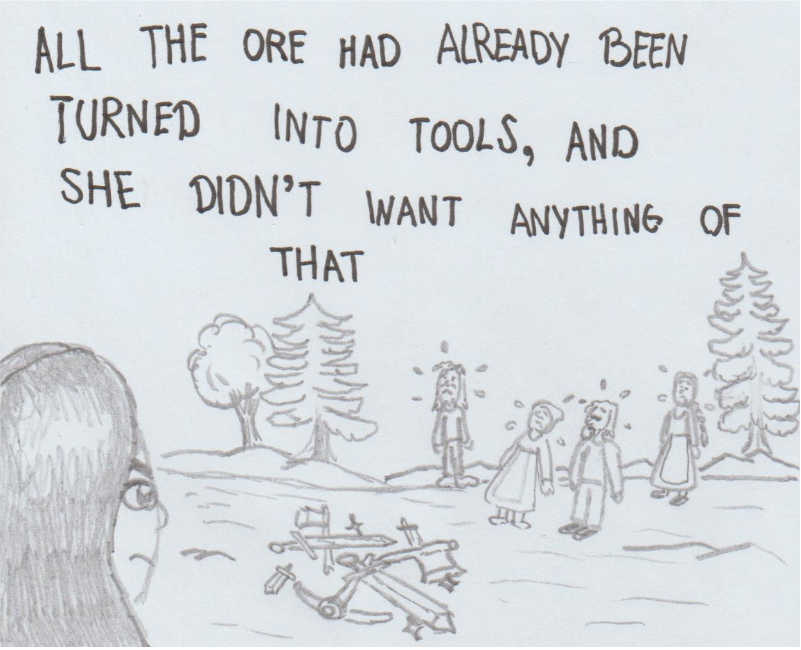 ALL THE ORE HAD ALREADY BEEN
TURNED INTO TOOLS, AND
SHE DIDN'T WANT ANYTHING OF
THAT